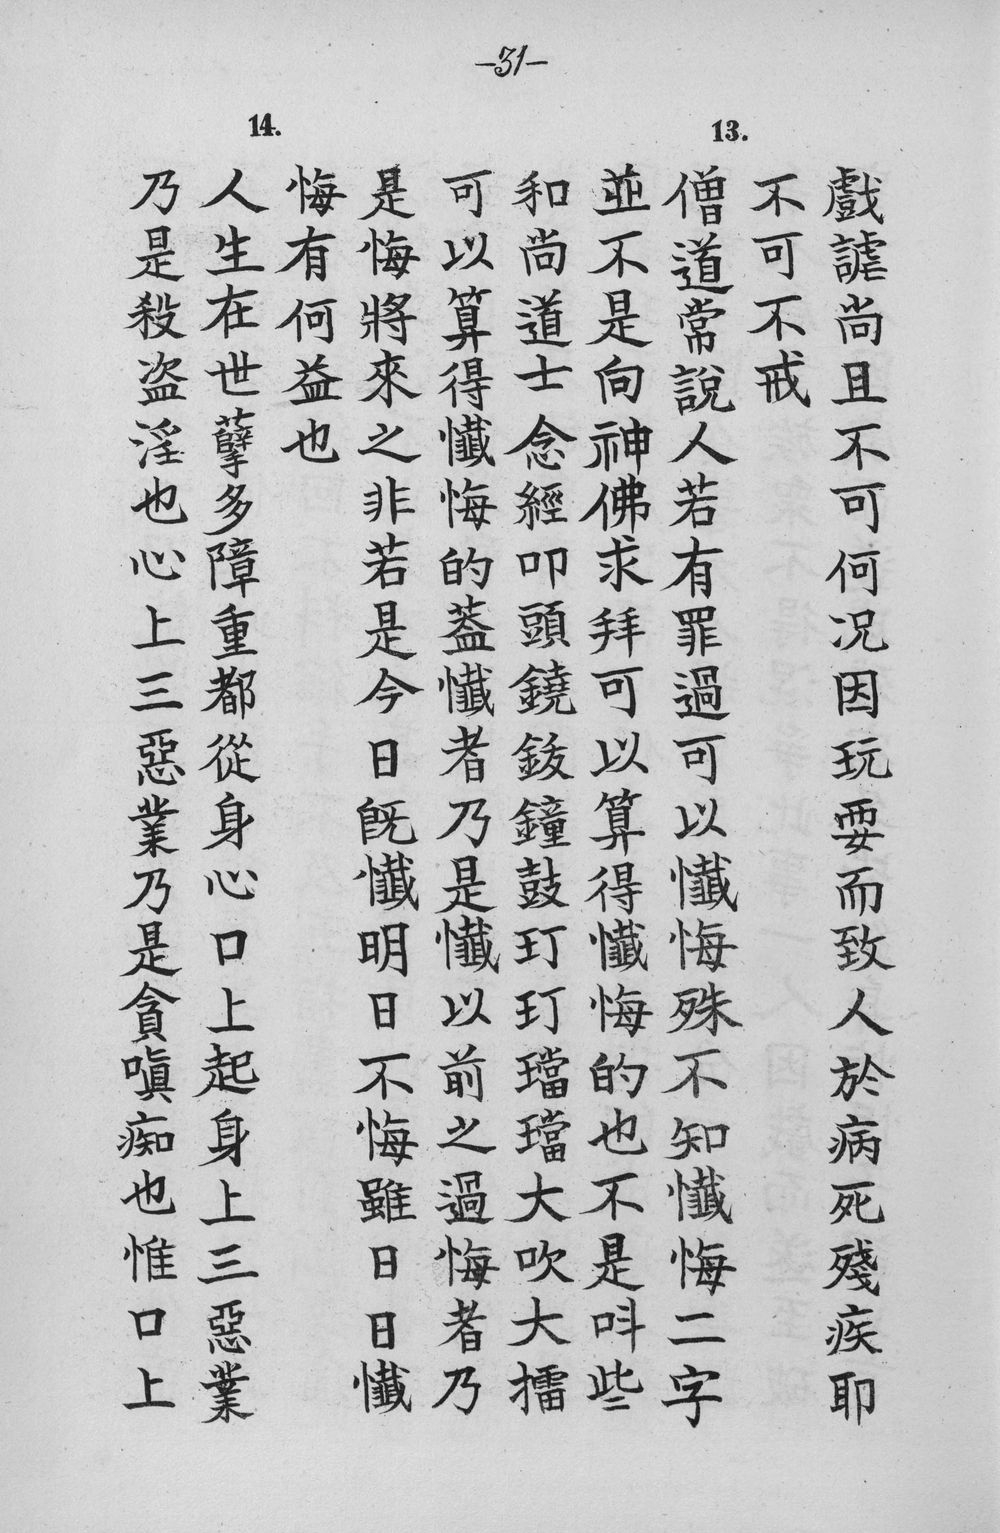 —31—
戲謔尚且不可何况因玩耍而致人於病死殘疾耶
不可不戒
13.
僧道常說人若有罪過可以懺悔殊不知懺悔二字
並不是向神佛求拜可以算得懺悔的也不是呌些
和尚道士念經叩頭鐃鈸鐘鼓玎玎璫璫大吹大擂
可以算得懺悔的葢懺者乃是懺以前之過悔者乃
是悔將來之非若是今日旣懺明日不悔雖日日懺
悔有何益也
14.
人生在世孽多障重都從身心口上起身上三惡業
乃是殺盜淫也心上三惡業乃是貪嗔痴也惟口上